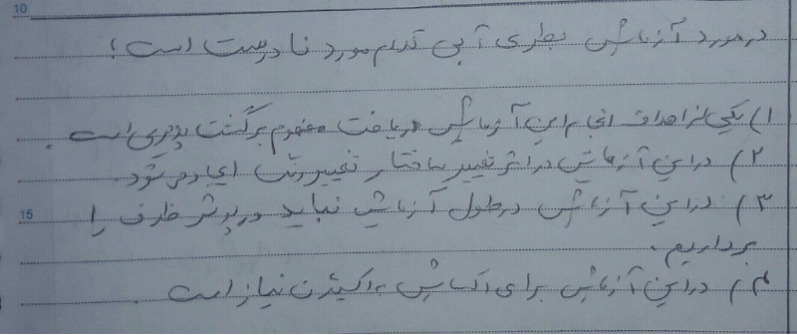 10
در مورد آزمایش بطری آبی کدام مورد نادرست است؟
۱) یکی از اهداف انجام این آزمایش دریافت مفهوم برگشت پذیری است.
۲) در این آزمایش در اثر تغییر ساختار تغییر رنگ ایجاد می شود.
15
۳) در این آزمایش در طول آزمایش نباید درپوش ظرف را
برداریم.
۴) در این آزمایش برای اکسایش به اکسیژن نیاز است.